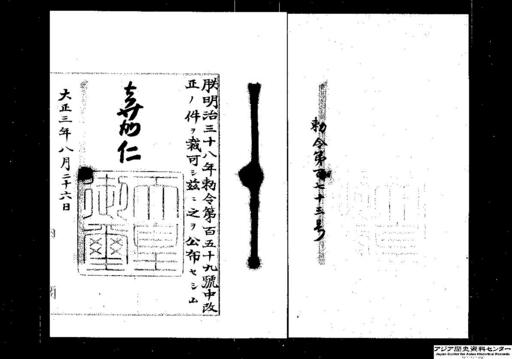 勅令第百七十三号
朕明治三十八年勅令第百五十九號中改
正ノ件ヲ裁可シ茲ニ之ヲ公布セシム
嘉仁
大正三年八月二十六日
アジア歴史資料センター
Japan Center for Asian Historical Records